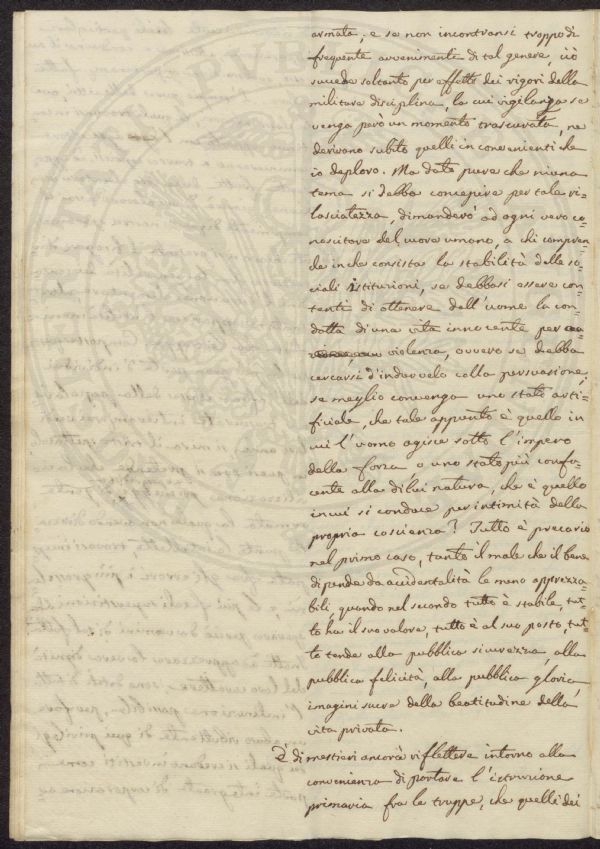 armata, e se non incontransi troppo di
frequente avvenimenti di tal genere, ciò
succede soltanto per effetto dei rigori della
militare disciplina, la cui vigilanza se
venga però un momento trascurata, ne
derivano subito quelli inconvenienti che
io deploro. Ma dato pure che niuna
tema si debba concepire per tale ri-
lasciatezza, dimanderò ad ogni vero co-
noscitore del cuore umano, a chi compren-
de in che consista la stabilità delle so-
ciali istituzioni, se debbasi essere con-
tenti di ottenere dall'uomo la con-
dotta di una vita innocente per
violenza, ovvero se debba
cercarsi d'indurvelo colla persuasione,
se meglio convenga uno stato arti-
ficiale, che tale appunto è quello in
cui l'uomo agisce sotto l'impero
della forza o uno stato più confa-
cente alla di lui natura, che è quello
in cui si conduce per intimità della
propria coscienza? Tutto è precario
nel primo caso, tanto il male che il bene
dipende da accidentalità le meno apprezza-
bili, quando nel secondo tutto è stabile, tut-
to ha il suo valore, tutto è al suo posto, tut-
to tende alla pubblica sicurezza, alla
pubblica felicità, alla pubblica gloria
imagini sacre della beatitudine della
vita privata.
È di mestieri ancora riflettere intorno alla
convenienza di portare l'istruzione
primaria fra le truppe, che quelli dei